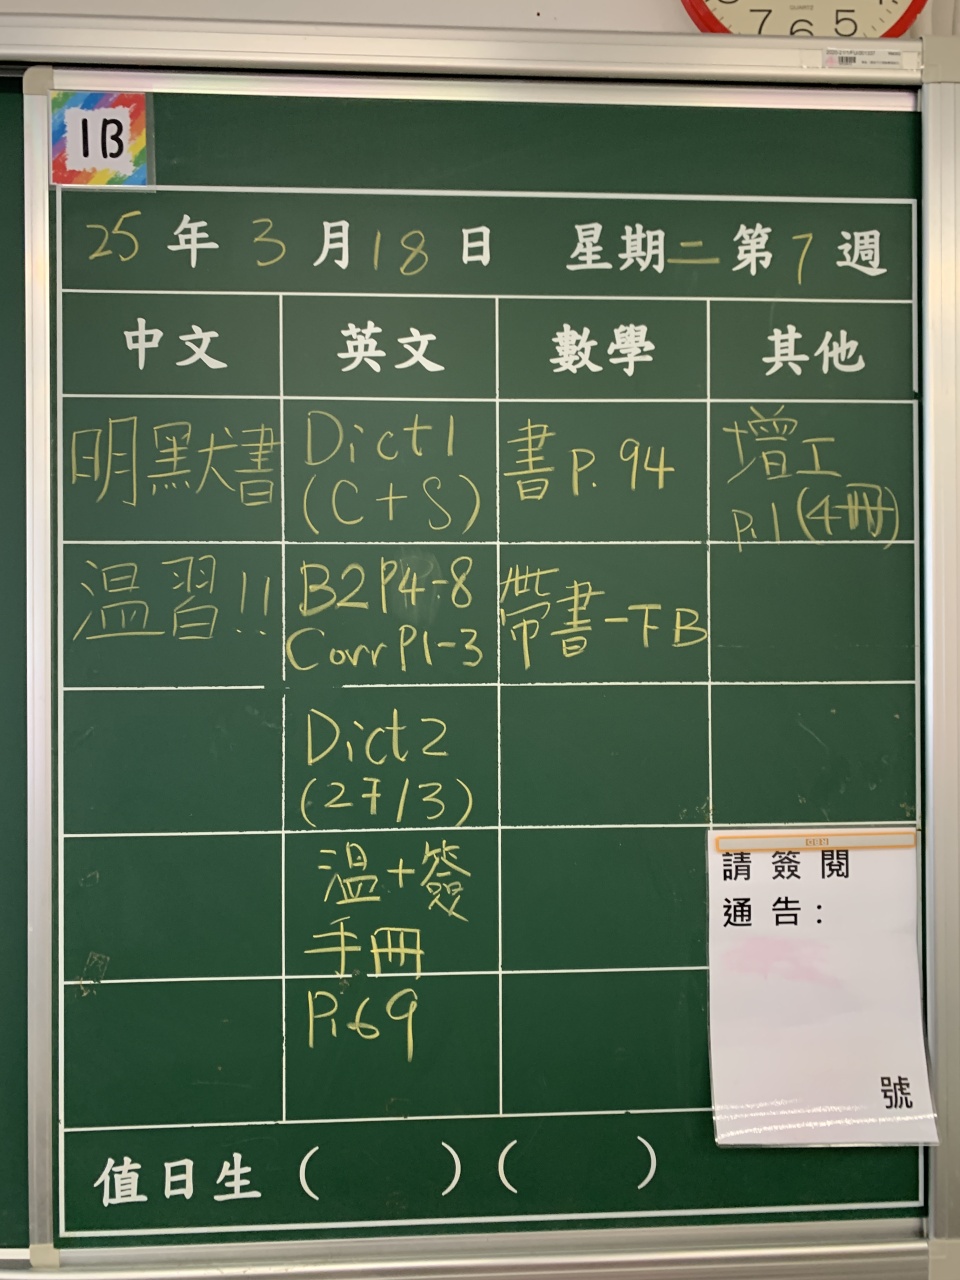 7 6 5
QUARTZ
1B
25 年 3 月 18 日 星期二 第 7 週
中文 英文 數學 其他
明默書
Dict 1
(C + S)
書 P. 94
增工
P.1 (4冊)
溫習!!
B2 P4-8
Corr P1-3
帶書-下B
Dict 2
(27/3)
溫+簽
手冊
P.69
請簽閱
通告:
號
值日生 ( ) ( )